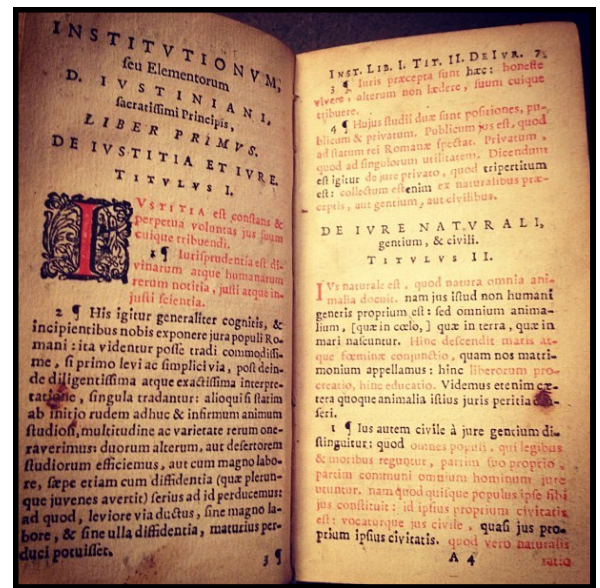 INSTITVTIONVM,
seu Elementorum
D. IVSTINIANI,
sacratissimi Principis,
LIBER PRIMVS.
DE IVSTITIA ET IVRE.
TITVLVS I.
IVSTITIA est constans &
perpetua voluntas jus suum
cuique tribuendi.
1 ¶ Iurisprudentia est di-
vinarum atque humanarum
rerum notitia, justi atque in-
justi scientia.
2 ¶ His igitur generaliter cognitis, &
incipientibus nobis exponere jura populi Ro-
mani : ita videntur posse tradi commodissi-
me, si primo levi ac simplici via, post dein-
de diligentissima atque exactissima interpre-
tatione, singula tradantur: alioqui si statim
ab initio rudem adhuc & infirmum animum
studiosi, multitudine ac varietate rerum one-
raverimus: duorum alterum, aut desertorem
studiorum efficiemus, aut cum magno labo-
re, sæpe etiam cum diffidentia (quæ plerun-
que juvenes avertit) serius ad id perducemus:
ad quod, leviore via ductus, sine magno la-
bore, & sine ulla diffidentia, maturius per-
duci potuisset.
3 ¶
INST. LIB. I. TIT. II. DE IVR. 7
3 ¶ Iuris præcepta sunt hæc: honeste
vivere, alterum non lædere, suum cuique
tribuere.
4 ¶ Hujus studii duæ sunt positiones, pu-
blicum & privatum. Publicum jus est, quod
ad statum rei Romanæ spectat. Privatum,
quod ad singulorum utilitatem. Dicendum
est igitur de jure privato, quod tripertitum
est: collectum est enim ex naturalibus præ-
ceptis, aut gentium, aut civilibus.
DE IVRE NATVRALI,
gentium, & civili.
TITVLVS II.
IVs naturale est, quod natura omnia ani-
malia docuit. nam jus istud non humani
generis proprium est: sed omnium anima-
lium, [quæ in cœlo,] quæ in terra, quæ in
mari nascuntur. Hinc descendit maris at-
que fœminæ conjunctio, quam nos matri-
monium appellamus: hinc liberorum pro-
creatio, hinc educatio. Videmus etenim cæ-
tera quoque animalia istius juris peritia
seri.
1 ¶ Ius autem civile à jure gentium di-
stinguitur: quod omnes populi, qui legibus
& moribus reguntur, partim suo proprio,
partim communi omnium hominum jure
utuntur. nam quod quisque populus ipse sibi
jus constituit: id ipsius proprium civitatis
est: vocaturque jus civile, quasi jus pro-
prium ipsius civitatis. quod vero naturalis
A 4 ratio